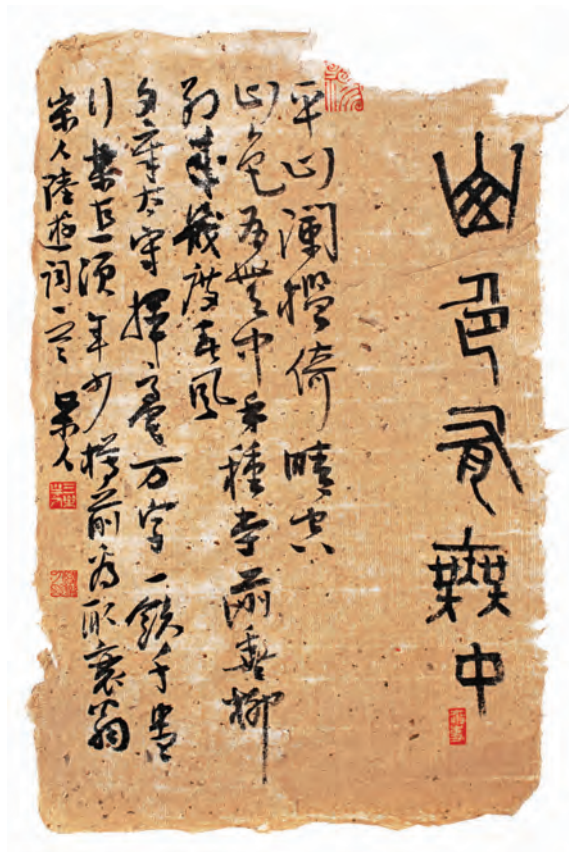 山色有無中
平山瀾檻倚晴空
山色有無中手種堂前垂柳
別來幾度春風
文章太守揮毫万字一飲千鍾
行樂直須年少樽前看取衰翁
宋人陸游詞